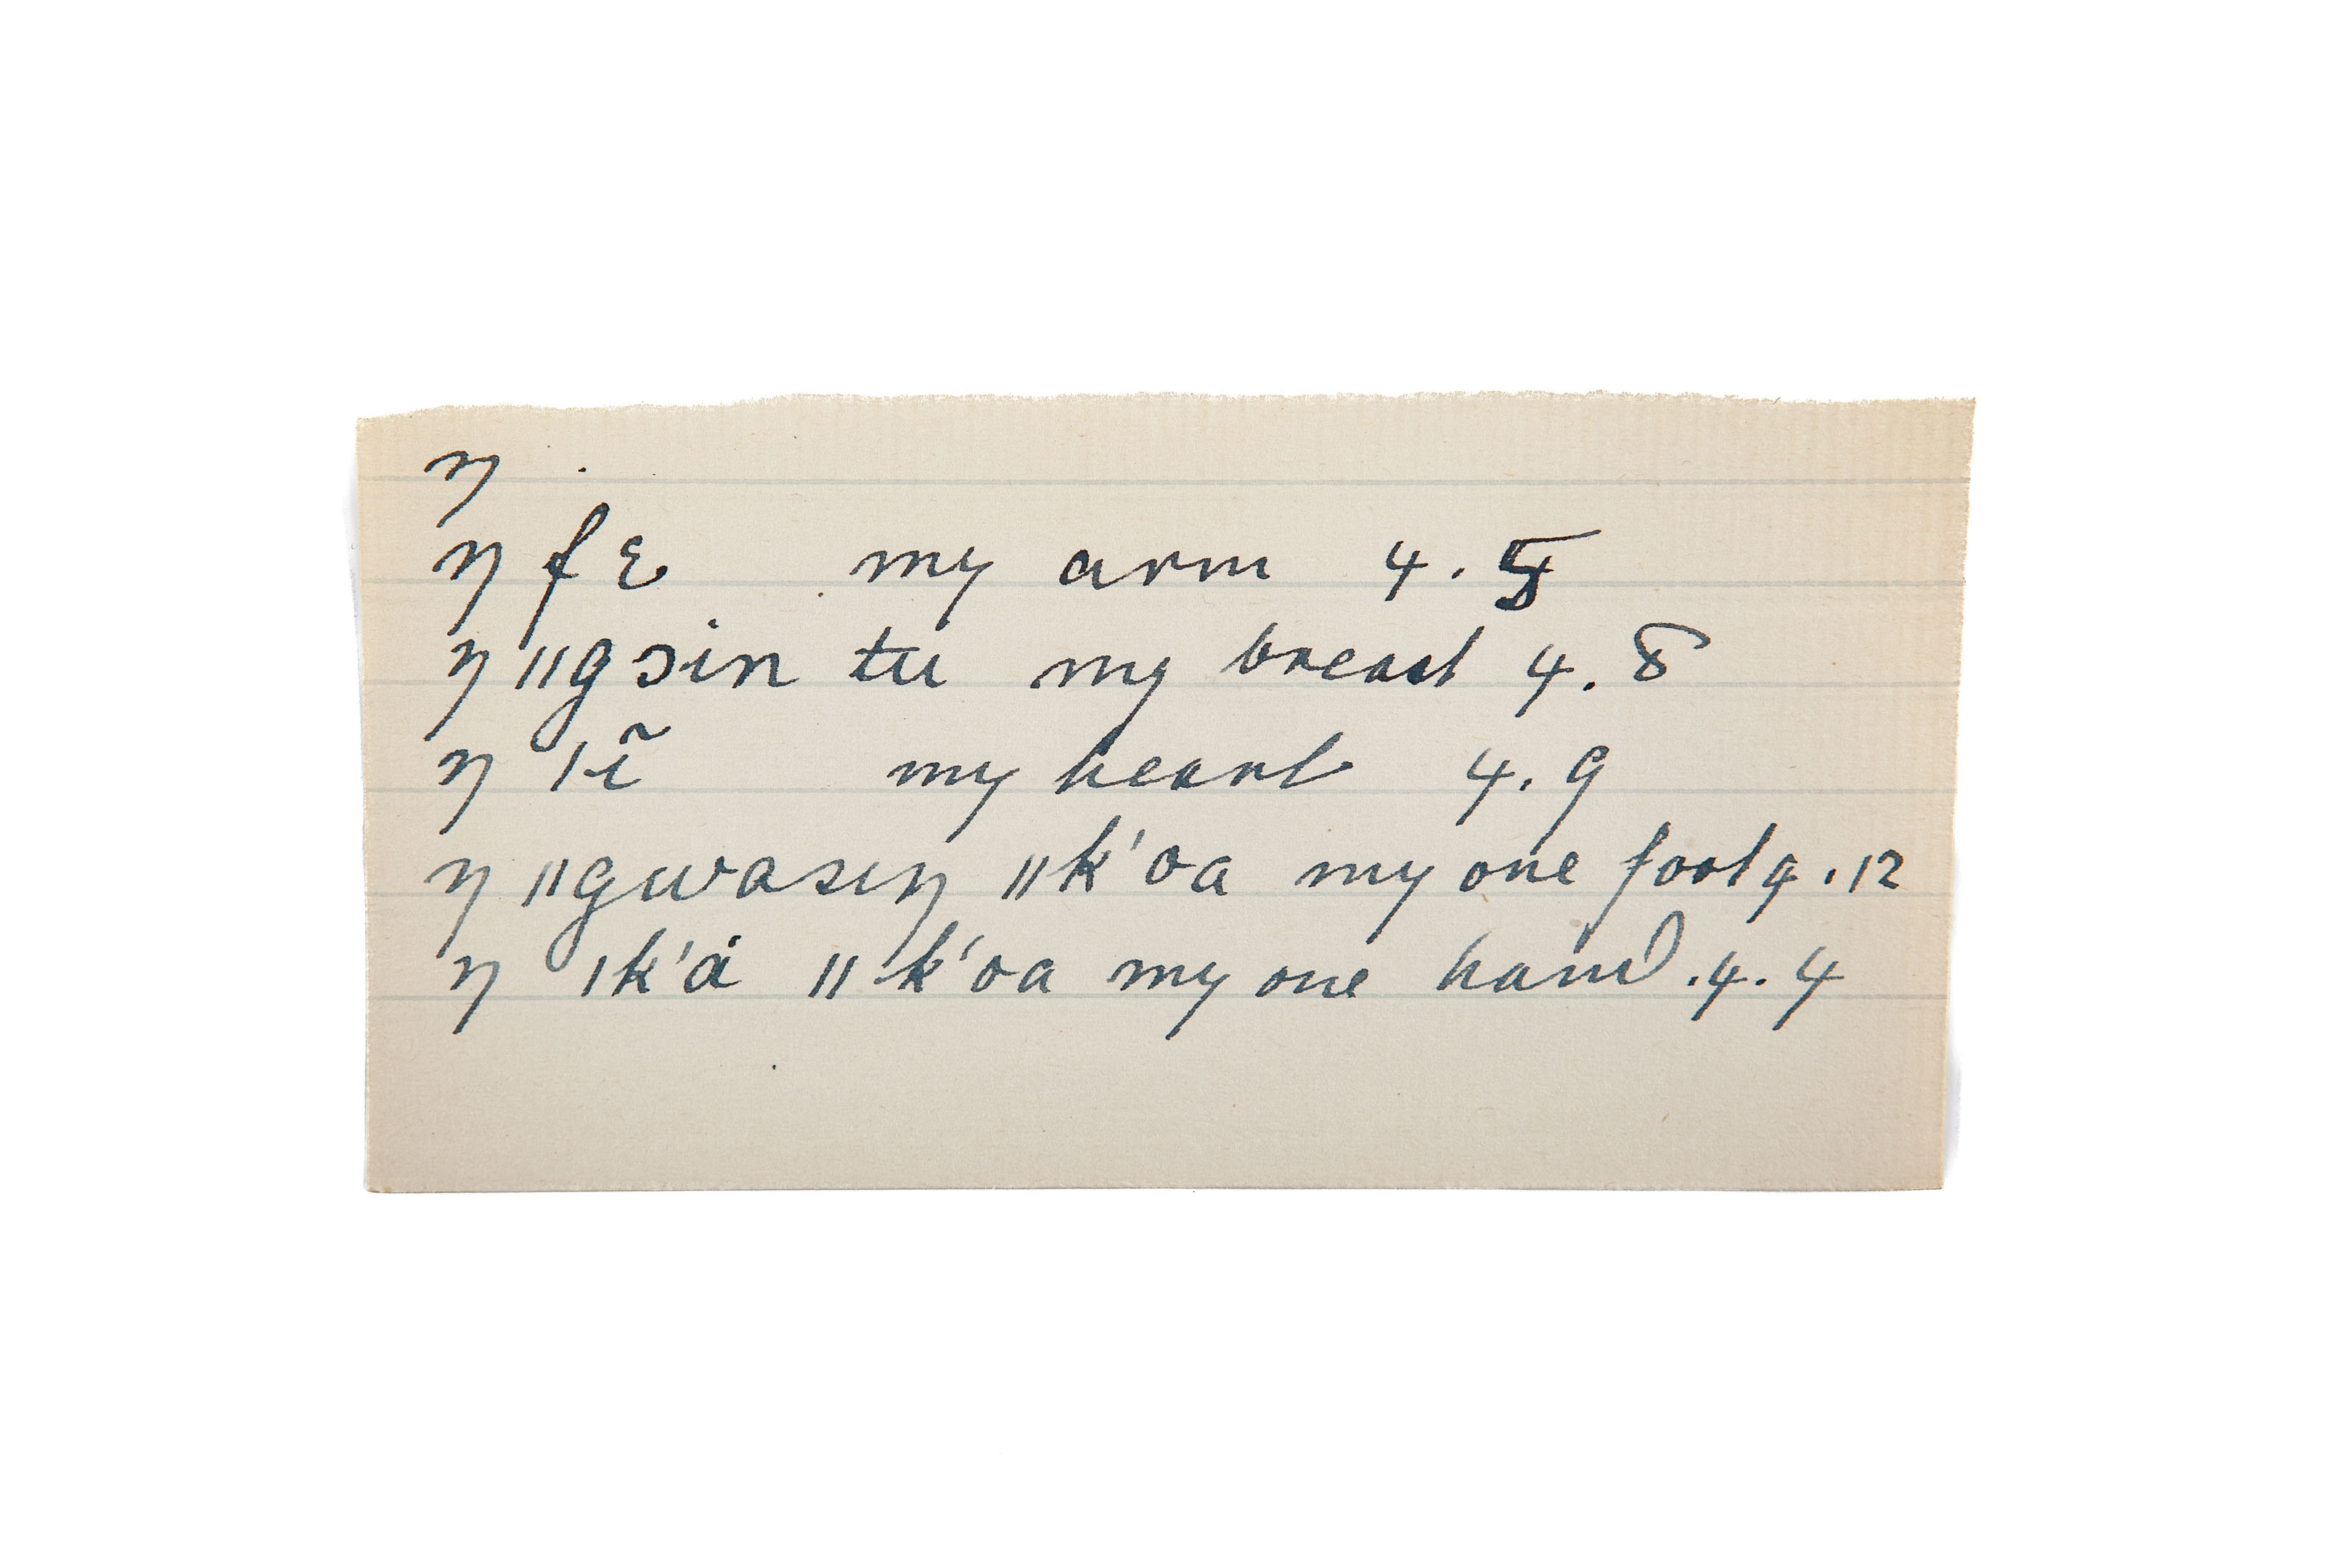 ŋ
ŋ ʄɛ my arm 4.5
ŋ ǁgɔin tu my breast 4.8
ŋ ǀĩ my heart 4.9
ŋ ǁgwasɩŋ ǁk'oa my one foot 4.12
ŋ ǀk'ȧ ǁk'oa my one hand.4.4